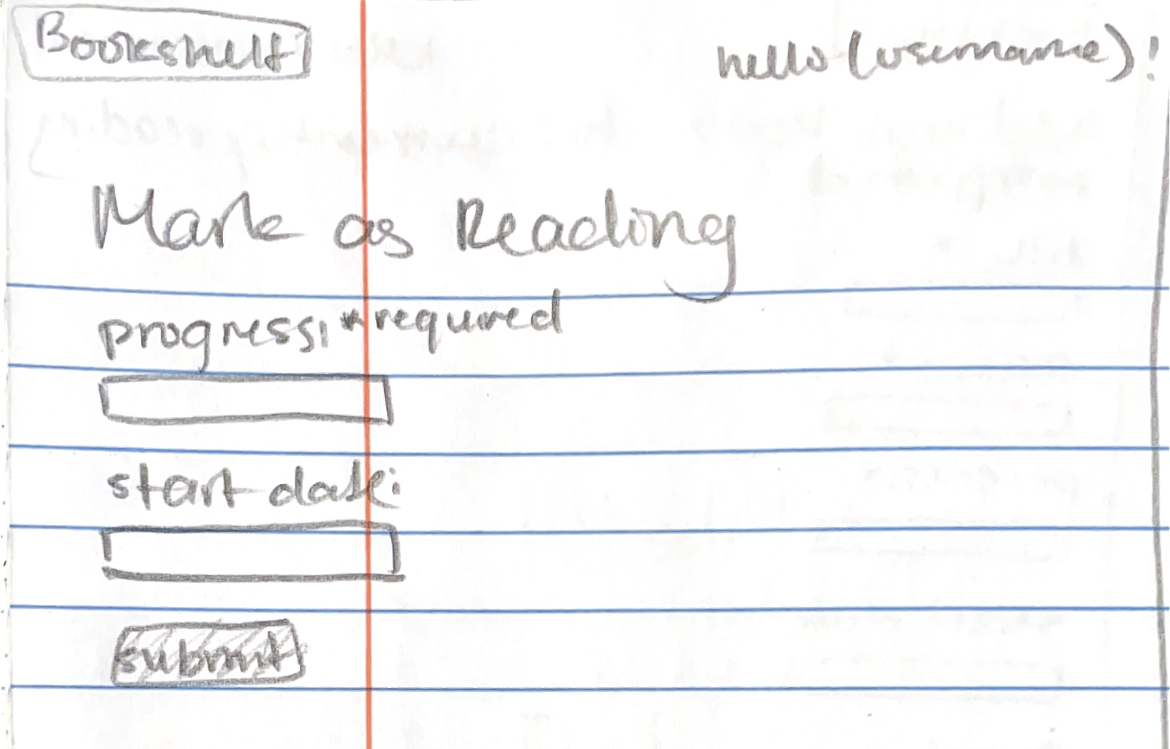 Bookshelf
hello (username)!
Mark as Reading
progress: *required
start date:
submit